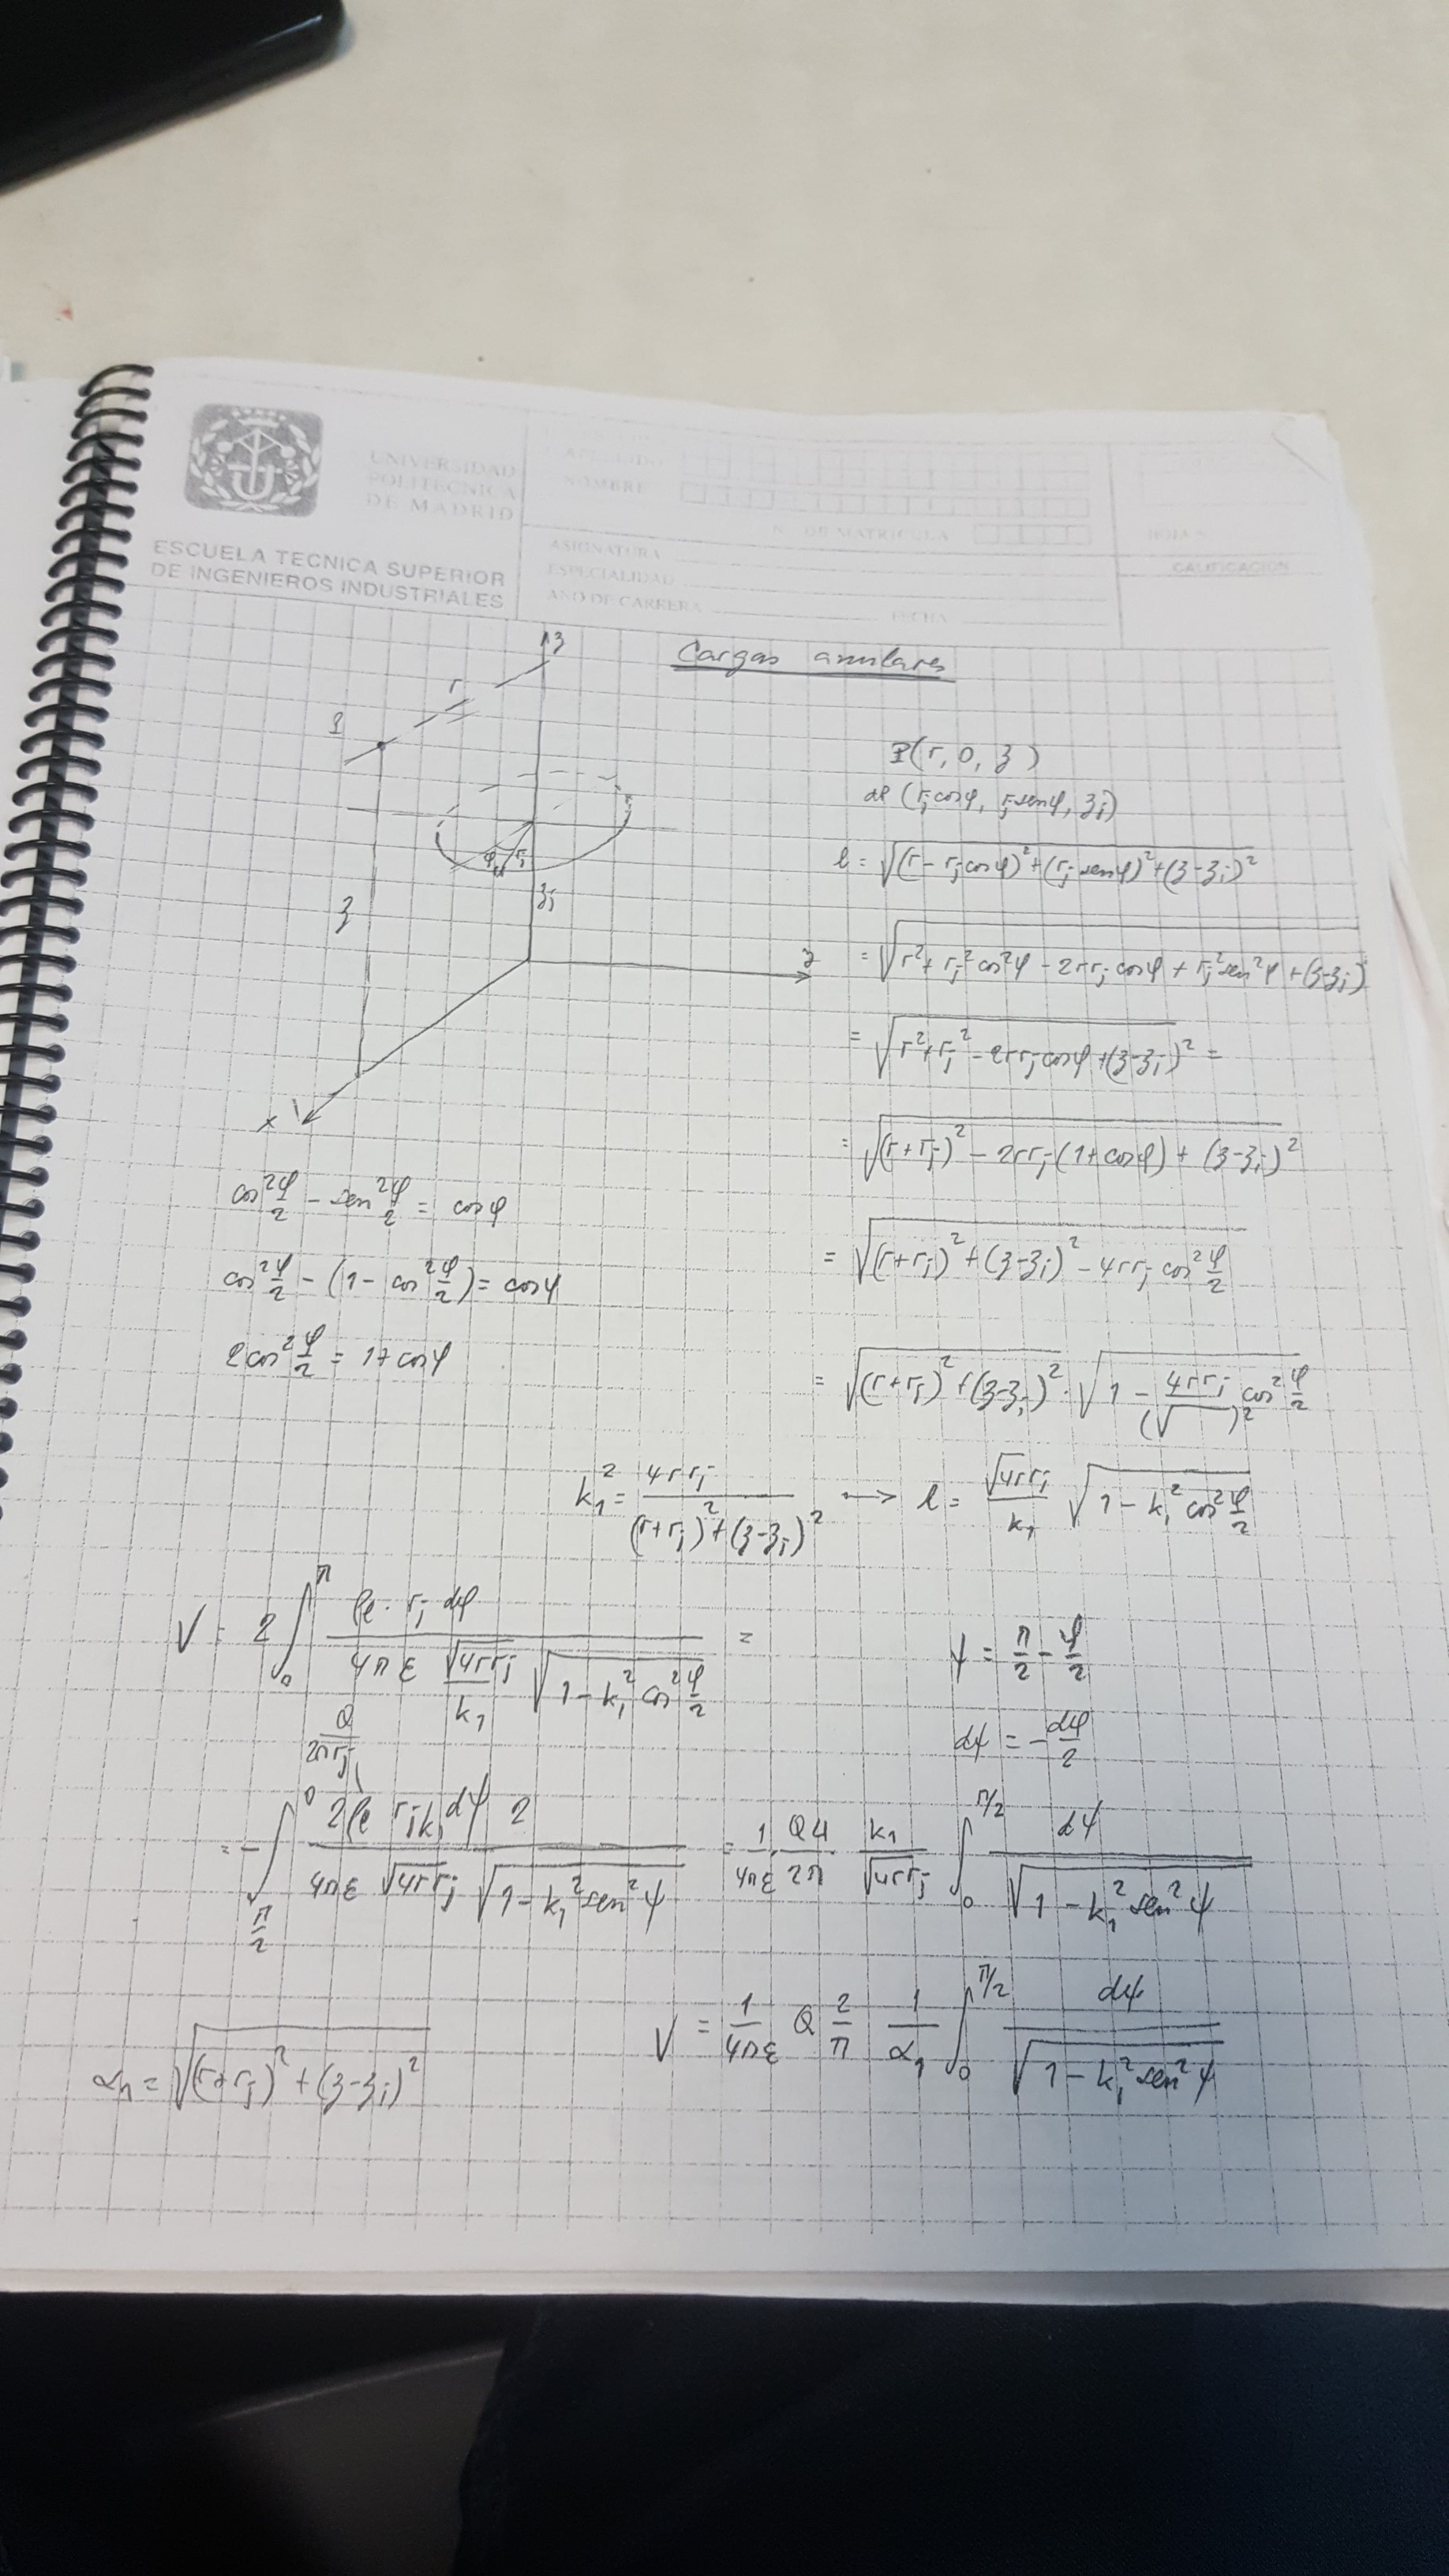 UNIVERSIDAD
POLITECNICA
DE MADRID
ESCUELA TECNICA SUPERIOR
DE INGENIEROS INDUSTRIALES
APELLIDO
NOMBRE
N. DE MATRICULA
ASIGNATURA
ESPECIALIDAD
AÑO DE CARRERA
FECHA
HOJA N.
CALIFICACION
Cargas anulares
z
r
P
φ
r_j
z_j
z
y
x
P(r, 0, z)
dl (r_j cosφ, r_j senφ, z_j)
l = √((r - r_j cosφ)² + (r_j senφ)² + (z-z_j)²)
= √(r² + r_j² cos²φ - 2rr_j cosφ + r_j² sen²φ + (z-z_j)
= √(r² + r_j² - 2rr_j cosφ + (z-z_j)²) =
= √((r+r_j)² - 2rr_j (1+cosφ) + (z-z_j)²)
cos² φ/2 - sen² φ/2 = cosφ
= √((r+r_j)² + (z-z_j)² - 4rr_j cos² φ/2)
cos² φ/2 - (1 - cos² φ/2) = cosφ
2cos² φ/2 = 1+cosφ
= √((r+r_j)² + (z-z_j)²) · √(1 - 4rr_j/(√ )² cos² φ/2)
k₁² = 4rr_j / ((r+r_j)² + (z-z_j)²) → l = √4rr_j / k₁ √(1 - k₁² cos² φ/2)
V = 2 ∫₀^π ρe · r_j dφ / (4πε √4rr_j / k₁ √(1 - k₁² cos² φ/2)) =
ψ = π/2 - φ/2
dψ = - dφ/2
Q / 2πr_j
= - ∫_{π/2}^0 2ρe r_j k₁ dψ 2 / (4πε √4rr_j √(1 - k₁² sen²ψ)) = 1/4πε Q4/2π k₁/√4rr_j ∫₀^{π/2} dψ / √(1 - k₁² sen²ψ)
V = 1/4πε Q 2/π 1/α₁ ∫₀^{π/2} dψ / √(1 - k₁² sen²ψ)
α₁ = √((r+r_j)² + (z-z_j)²)